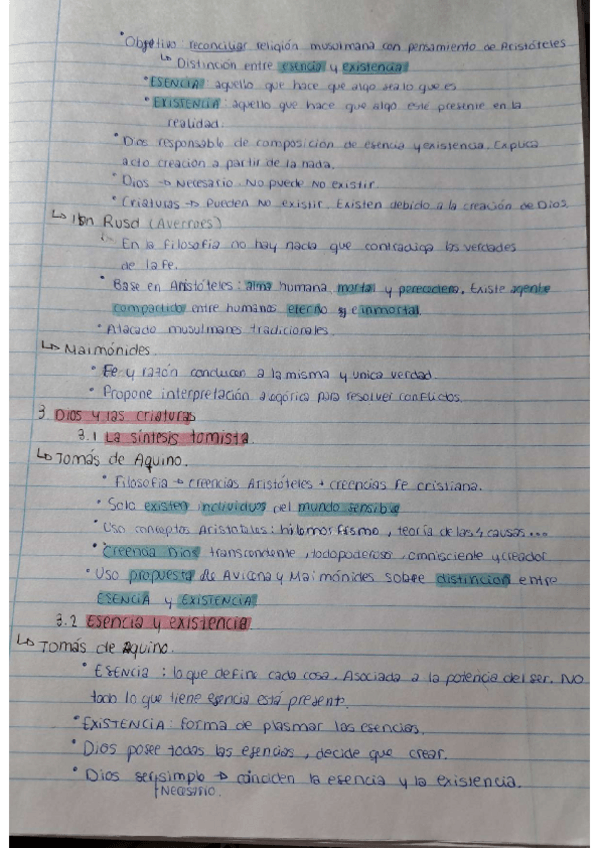 • Objetivo reconciliar religión musulmana con pensamiento de Aristóteles
↳ Distinción entre esencia y existencia
• ESENCIA: aquello que hace que algo sea lo que es
• EXISTENCIA: aquello que hace que algo esté presente en la
realidad.
• Dios responsable de composición de esencia y existencia. Explica
acto creación a partir de la nada.
• Dios → Necesario. No puede no existir.
• Criaturas → Pueden no existir. Existen debido a la creación de Dios.
↳ Ibn Rusd (Averroes)
• En la filosofía no hay nada que contradiga las verdades
de la fe.
• Base en Aristóteles: alma humana mortal y perecedera. Existe agente
compartido entre humanos eterno y e inmortal.
• Atacado musulmanes tradicionales
↳ Maimónides.
• Fe y razón conducen a la misma y unica verdad.
• Propone interpretación alegórica para resolver conflictos.
3. Dios y las criaturas
3.1 La síntesis tomista.
↳ Tomás de Aquino.
• Filosofía → creencias Aristóteles + creencias fe cristiana.
• Solo existen individuos del mundo sensible
• Uso conceptos Aristotales: hilomorfismo, teoría de las 4 causas...
• Creencia Dios transcendente, todopoderoso, omnisciente y creador
• Uso propuesta de Avicena y Maimónides sobre distincion entre
ESENCIA y EXISTENCIA
3.2 Esencia y existencia
↳ Tomás de Aquino.
• ESENCIA: lo que define cada cosa. Asociada a la potencia del ser. NO
todo lo que tiene esencia está present.
• EXISTENCIA: forma de plasmar las esencias.
• Dios posee todas las esencias, decide que crear.
• Dios ser simple → coinciden la esencia y la existencia.
Necesario.